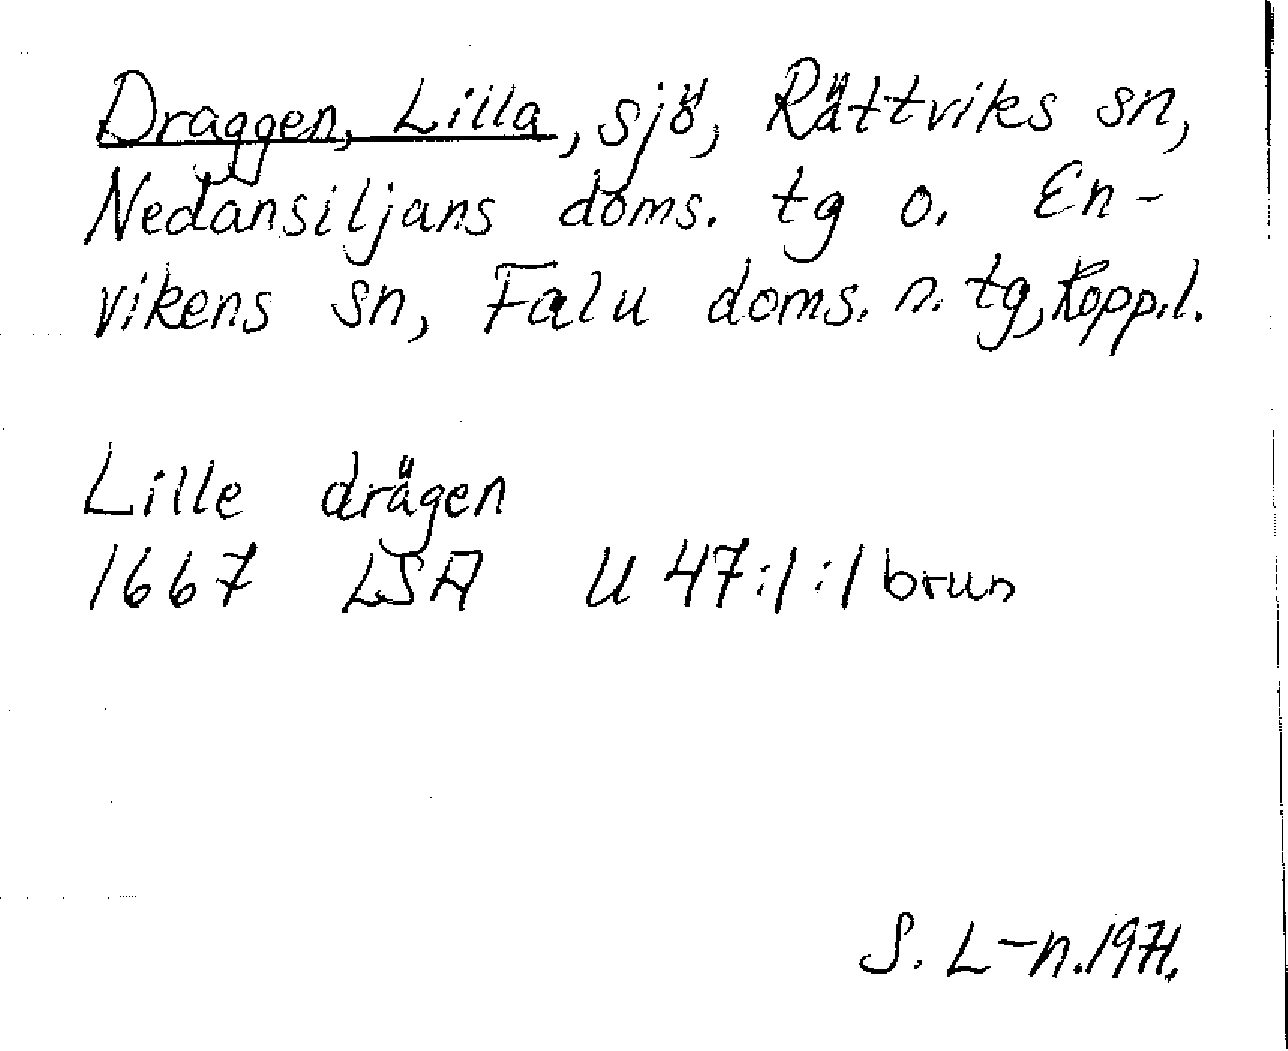 Draggen, Lilla, sjö, Rättviks sn,
Nedansiljans doms. tg o. En-
vikens sn, Falu doms. n. tg, Kopp.l.
Lille drägen
1667 LSA U 47:1:1 brun
S. L-n. 1971.